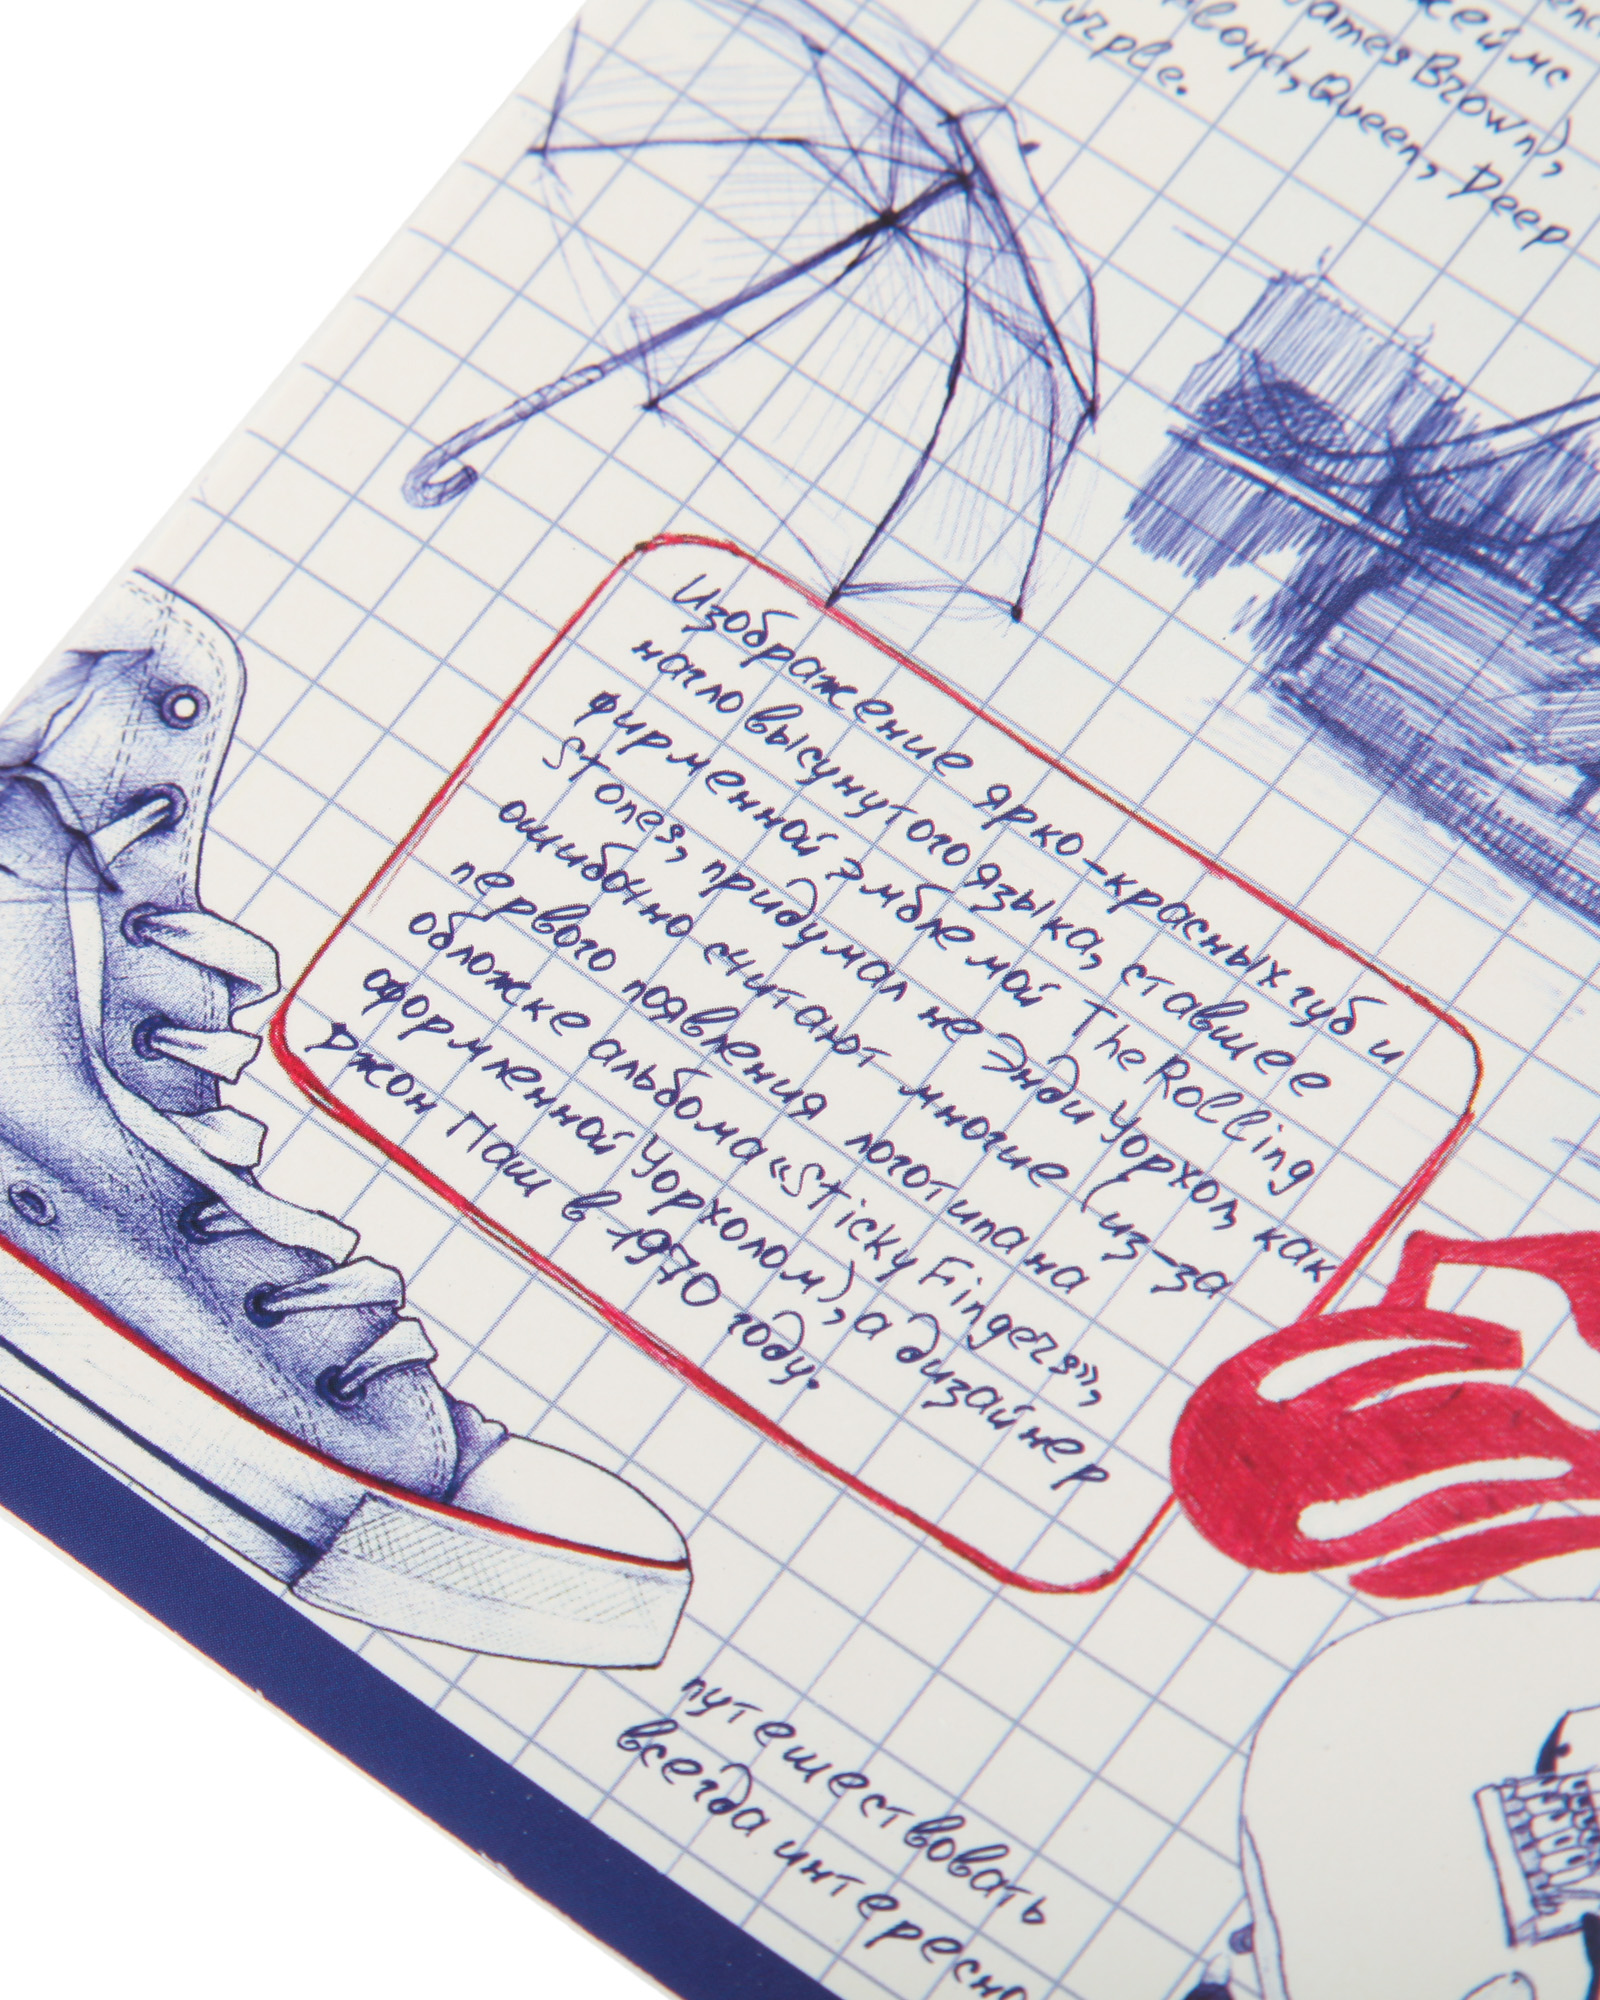 James Brown),
Queen, Deep
Purple.
Изображение ярко-красных губ и
нагло высунутого языка, ставшее
фирменной эмблемой The Rolling
Stones, придумал не Энди Уорхол, как
ошибочно считают многие (из-за
первого появления логотипа на
обложке альбома «Sticky Fingers»,
оформленной Уорхолом), а дизайнер
Джон Паш в 1970 году.
путешествовать
всегда интересно